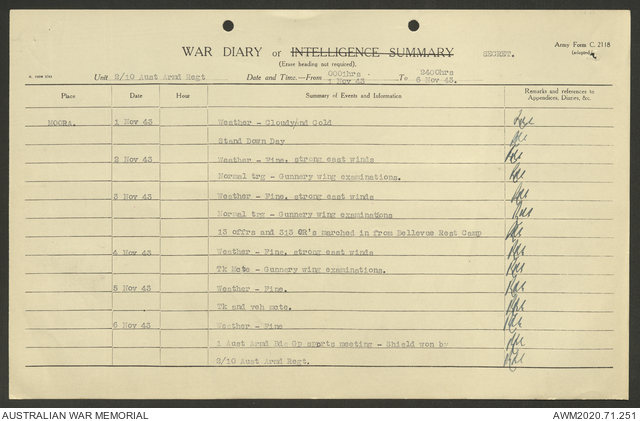 WAR DIARY or INTELLIGENCE SUMMARY SECRET. Army Form C. 2118
(Erase heading not required).
Unit 2/10 Aust Armd Regt Date and Time.—From 0001hrs 1 Nov 43 To 2400hrs 6 Nov 43.
Place Date Hour Summary of Events and Information Remarks and references to Appendices, Diaries, &c.
MOORA. 1 Nov 43 Weather - Cloudy/nd Cold
Stand Down Day
2 Nov 43 Weather - Fine, strong east winds
Normal trg - Gunnery wing examinations.
3 Nov 43 Weather - Fine, strong east winds
Normal trg - Gunnery wing examinations
13 offrs and 313 OR's marched in from Bellevue Rest Camp
4 Nov 43 Weather - Fine, strong east winds
Tk Mctc - Gunnery wing examinations.
5 Nov 43 Weather - Fine.
Tk and veh mctc.
6 Nov 43 Weather - Fine
1 Aust Armd Bde Gp sports meeting - Shield won by
2/10 Aust Armd Regt.
AUSTRALIAN WAR MEMORIAL AWM2020.71.251